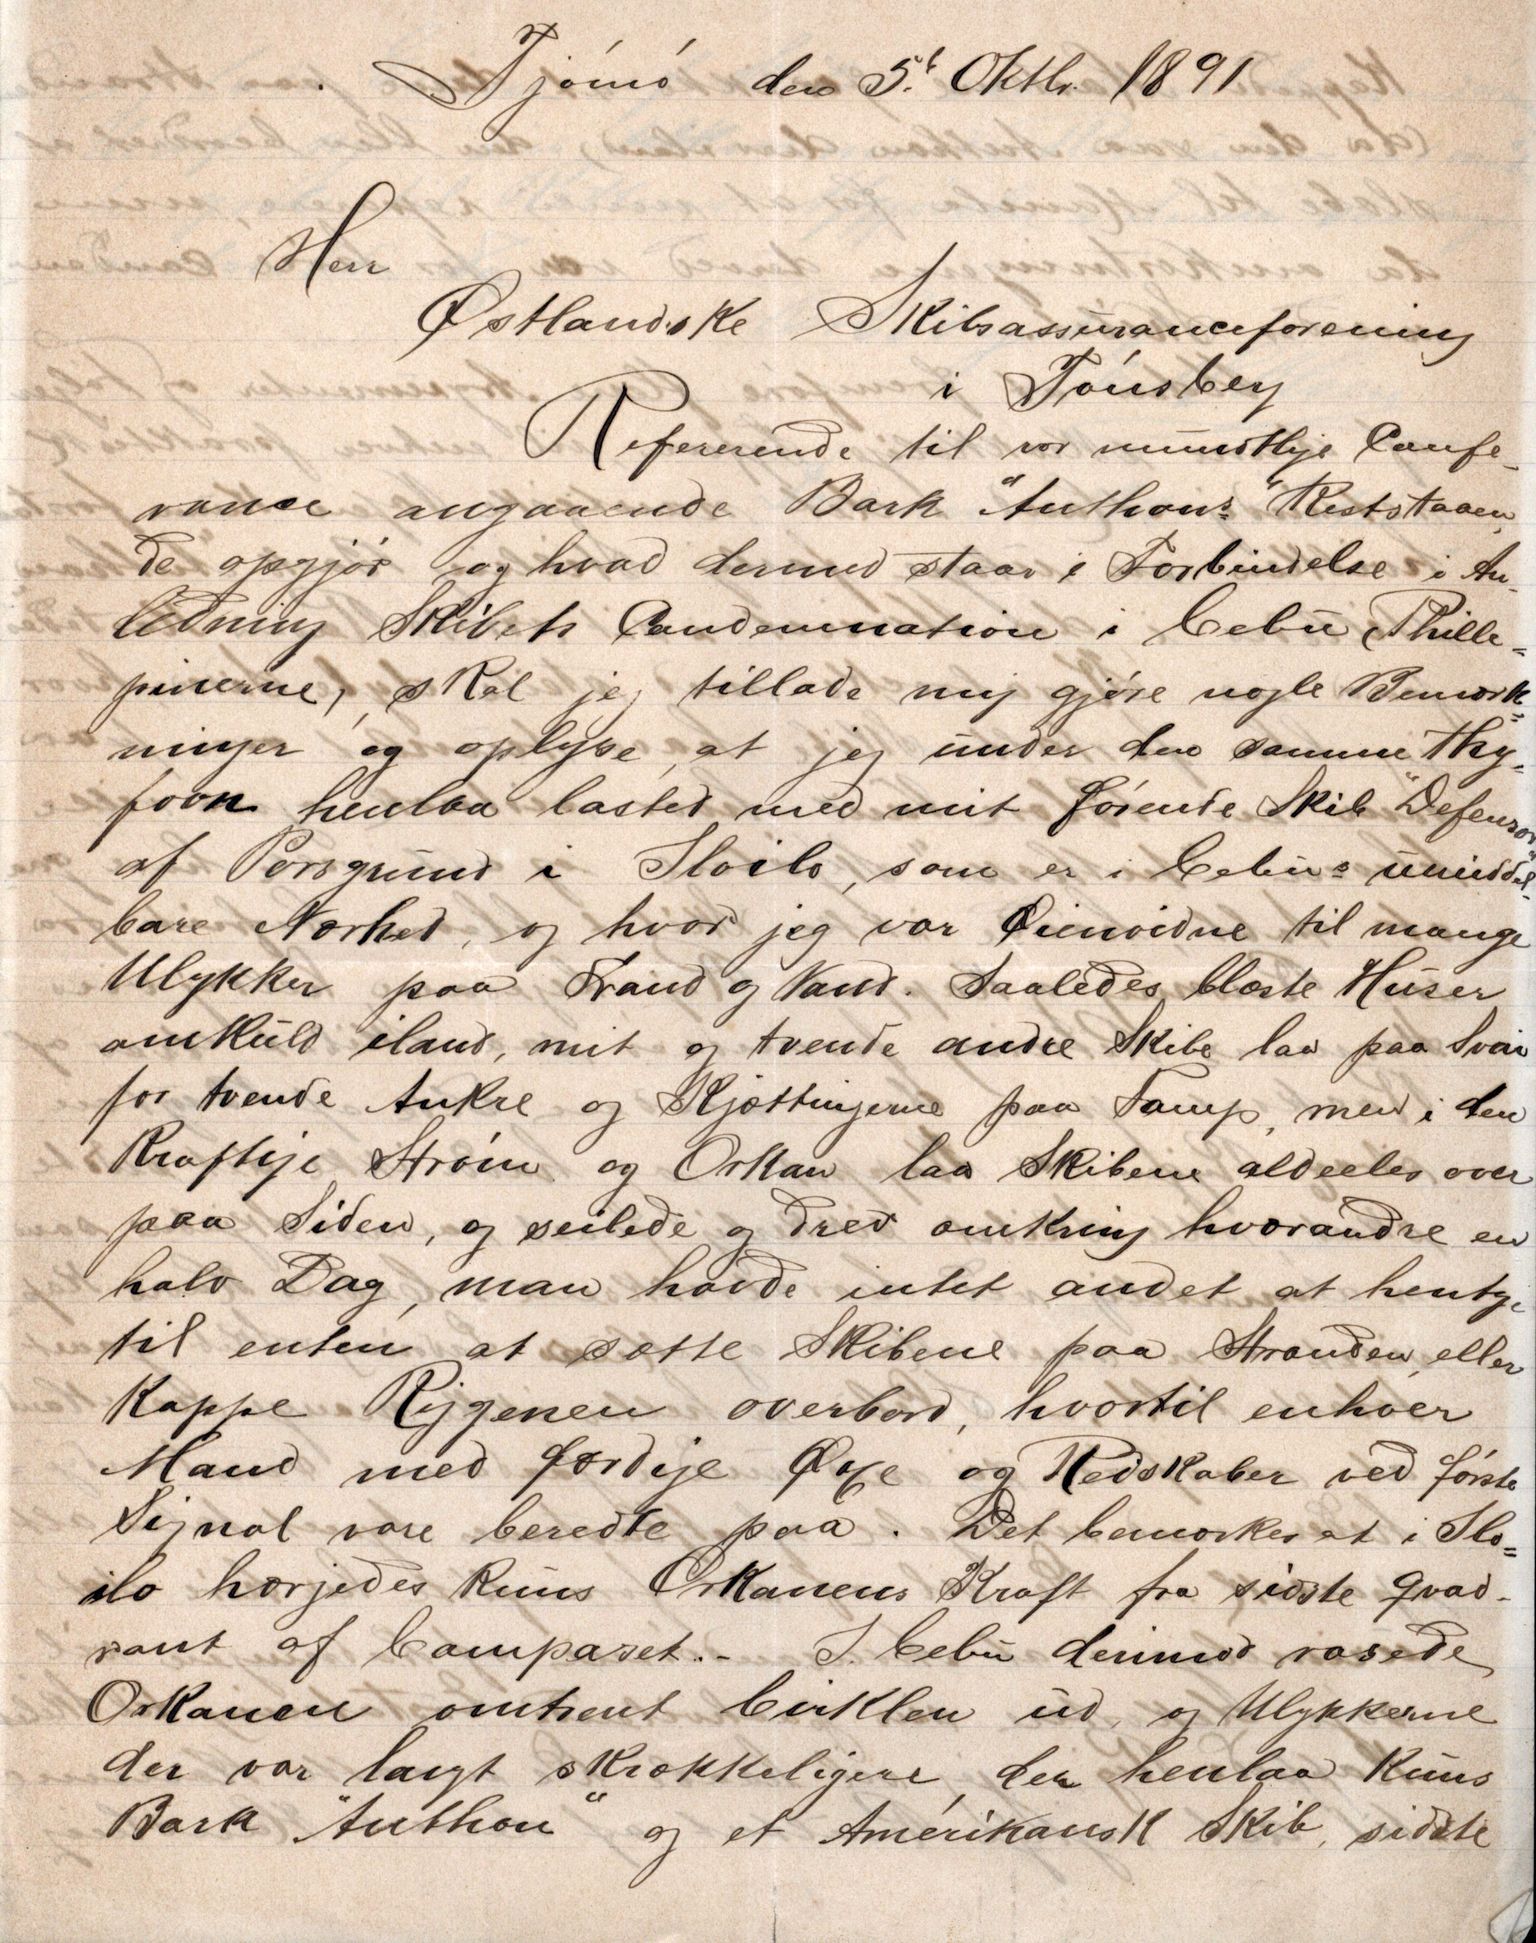 Tjömö den 5.t Oktbr. 1891
Herr
Østlandske Skibsassuranceforening
i Tönsberg
Refererende til vor mundtlige Confe-
rance angaaende Bark "Anthons" Reststaaen-
de opgjör og hvad dermed staar i Forbindelse i An-
ledning Skibets Condemnation i Cebu (Phille-
pinerne) skal jeg tillade mig gjöre nogle Bemærk-
ninger og oplyse, at jeg under den samme Thy-
foon henlaa lastet med mit förende Skib "Defensor"
af Porsgrund i Iloilo, som er i Cebu's umiddel-
bare Nærhed, og hvor jeg var Øienvidne til mange
Ulykker paa Strand og Vand. Saaledes blæste Huser
omkuld iland, mit og tvende andre Skibe laa paa Svai
for tvende Ankre og Kjættingerne paa Tamp, men i den
kraftige Ström og Orkan laa Skibene aldeeles over
paa Siden, og seilede og drev omkring hverandre en
halv Dag, man havde intet andet at henty
til enten at sætte Skibene paa Stranden, eller
Kappe Riggenen overbord, hvortil enhver
Mand med færdige Øxe og Redskaber ved förste
Signal vare beredte paa. Det bemærkes at i Ilo-
ilo hærjedes kuns Orkanens Kraft fra sidste qvad-
rant af Compasset.- I Cebu derimod rasede
Orkanen omtrent Cirklen ud, og Ulykkerne
der var langt skrækkeligere, der henlaa kuns
Bark "Anthon" og et Amerikansk Skib, sidste